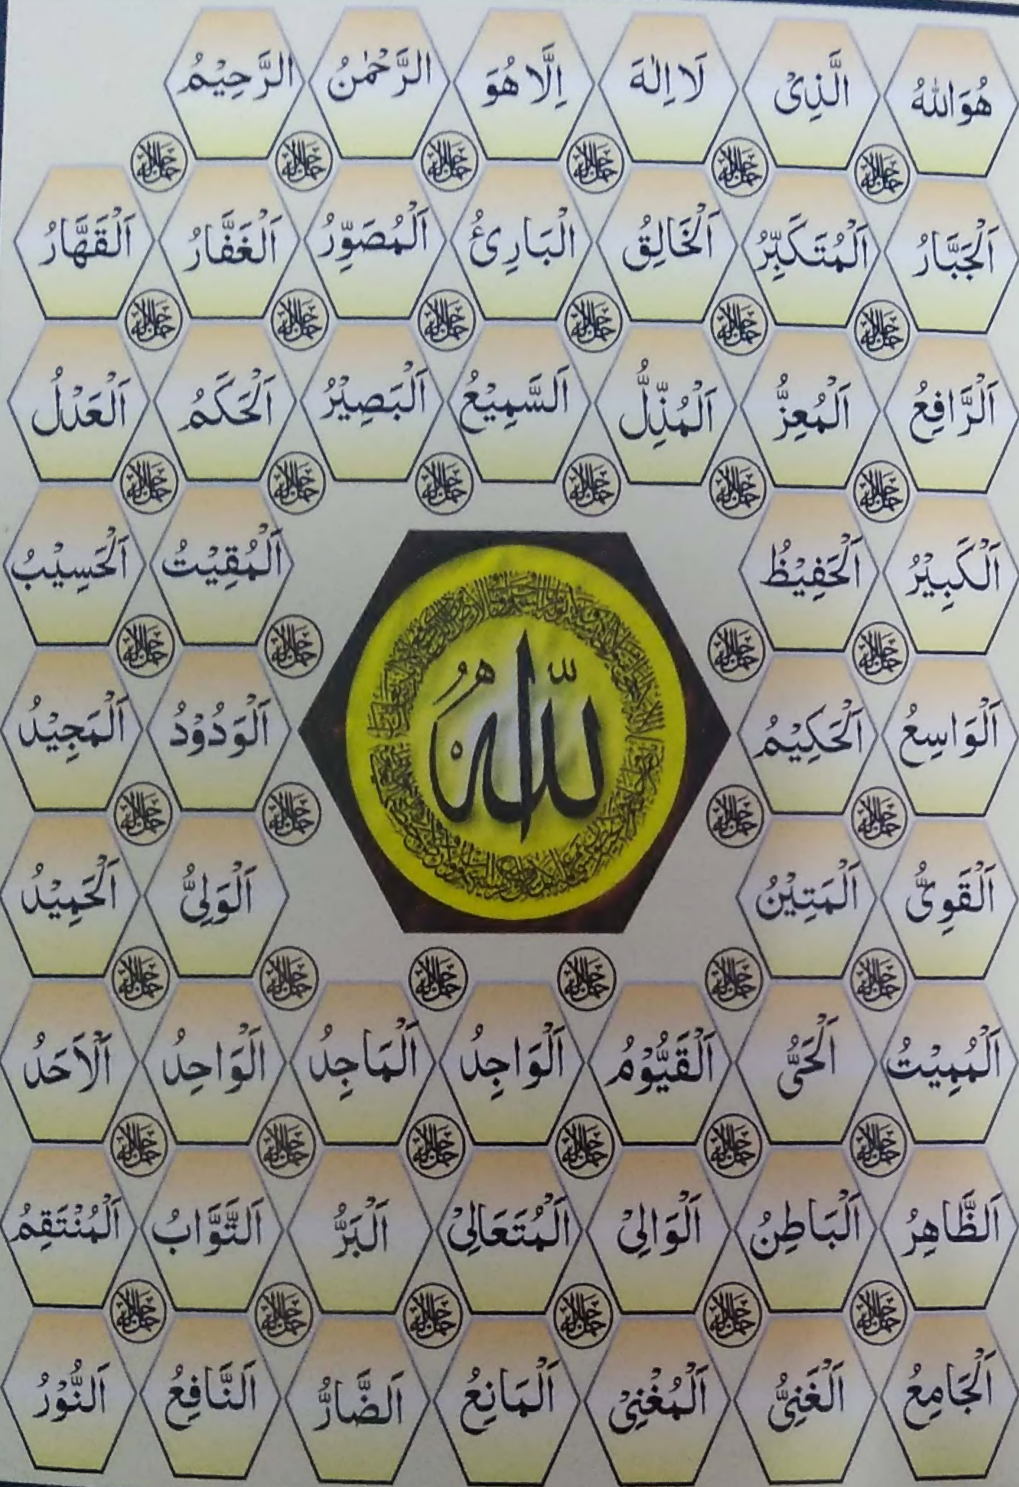 هُوَ اللهُ الَّذِیْ لَا اِلٰهَ اِلَّا هُوَ الرَّحْمٰنُ الرَّحِیْمُ
اَلْجَبَّارُ اَلْمُتَكَبِّرُ اَلْخَالِقُ اَلْبَارِئُ اَلْمُصَوِّرُ اَلْغَفَّارُ اَلْقَهَّارُ
اَلرَّافِعُ اَلْمُعِزُّ اَلْمُذِلُّ اَلسَّمِیْعُ اَلْبَصِیْرُ اَلْحَكَمُ اَلْعَدْلُ
اَلْكَبِیْرُ اَلْحَفِیْظُ اَلْمُقِیْتُ اَلْحَسِیْبُ
اَلْوَاسِعُ اَلْحَكِیْمُ اَلْوَدُوْدُ اَلْمَجِیْدُ
اللهُ
اَلْقَوِیُّ اَلْمَتِیْنُ اَلْوَلِیُّ اَلْحَمِیْدُ
اَلْمُمِیْتُ اَلْحَیُّ اَلْقَیُّوْمُ اَلْوَاجِدُ اَلْمَاجِدُ اَلْوَاحِدُ اَلْاَحَدُ
اَلظَّاهِرُ اَلْبَاطِنُ اَلْوَالِیْ اَلْمُتَعَالِیْ اَلْبَرُّ اَلتَّوَّابُ اَلْمُنْتَقِمُ
اَلْجَامِعُ اَلْغَنِیُّ اَلْمُغْنِیْ اَلْمَانِعُ اَلضَّارُّ اَلنَّافِعُ اَلنُّوْرُ